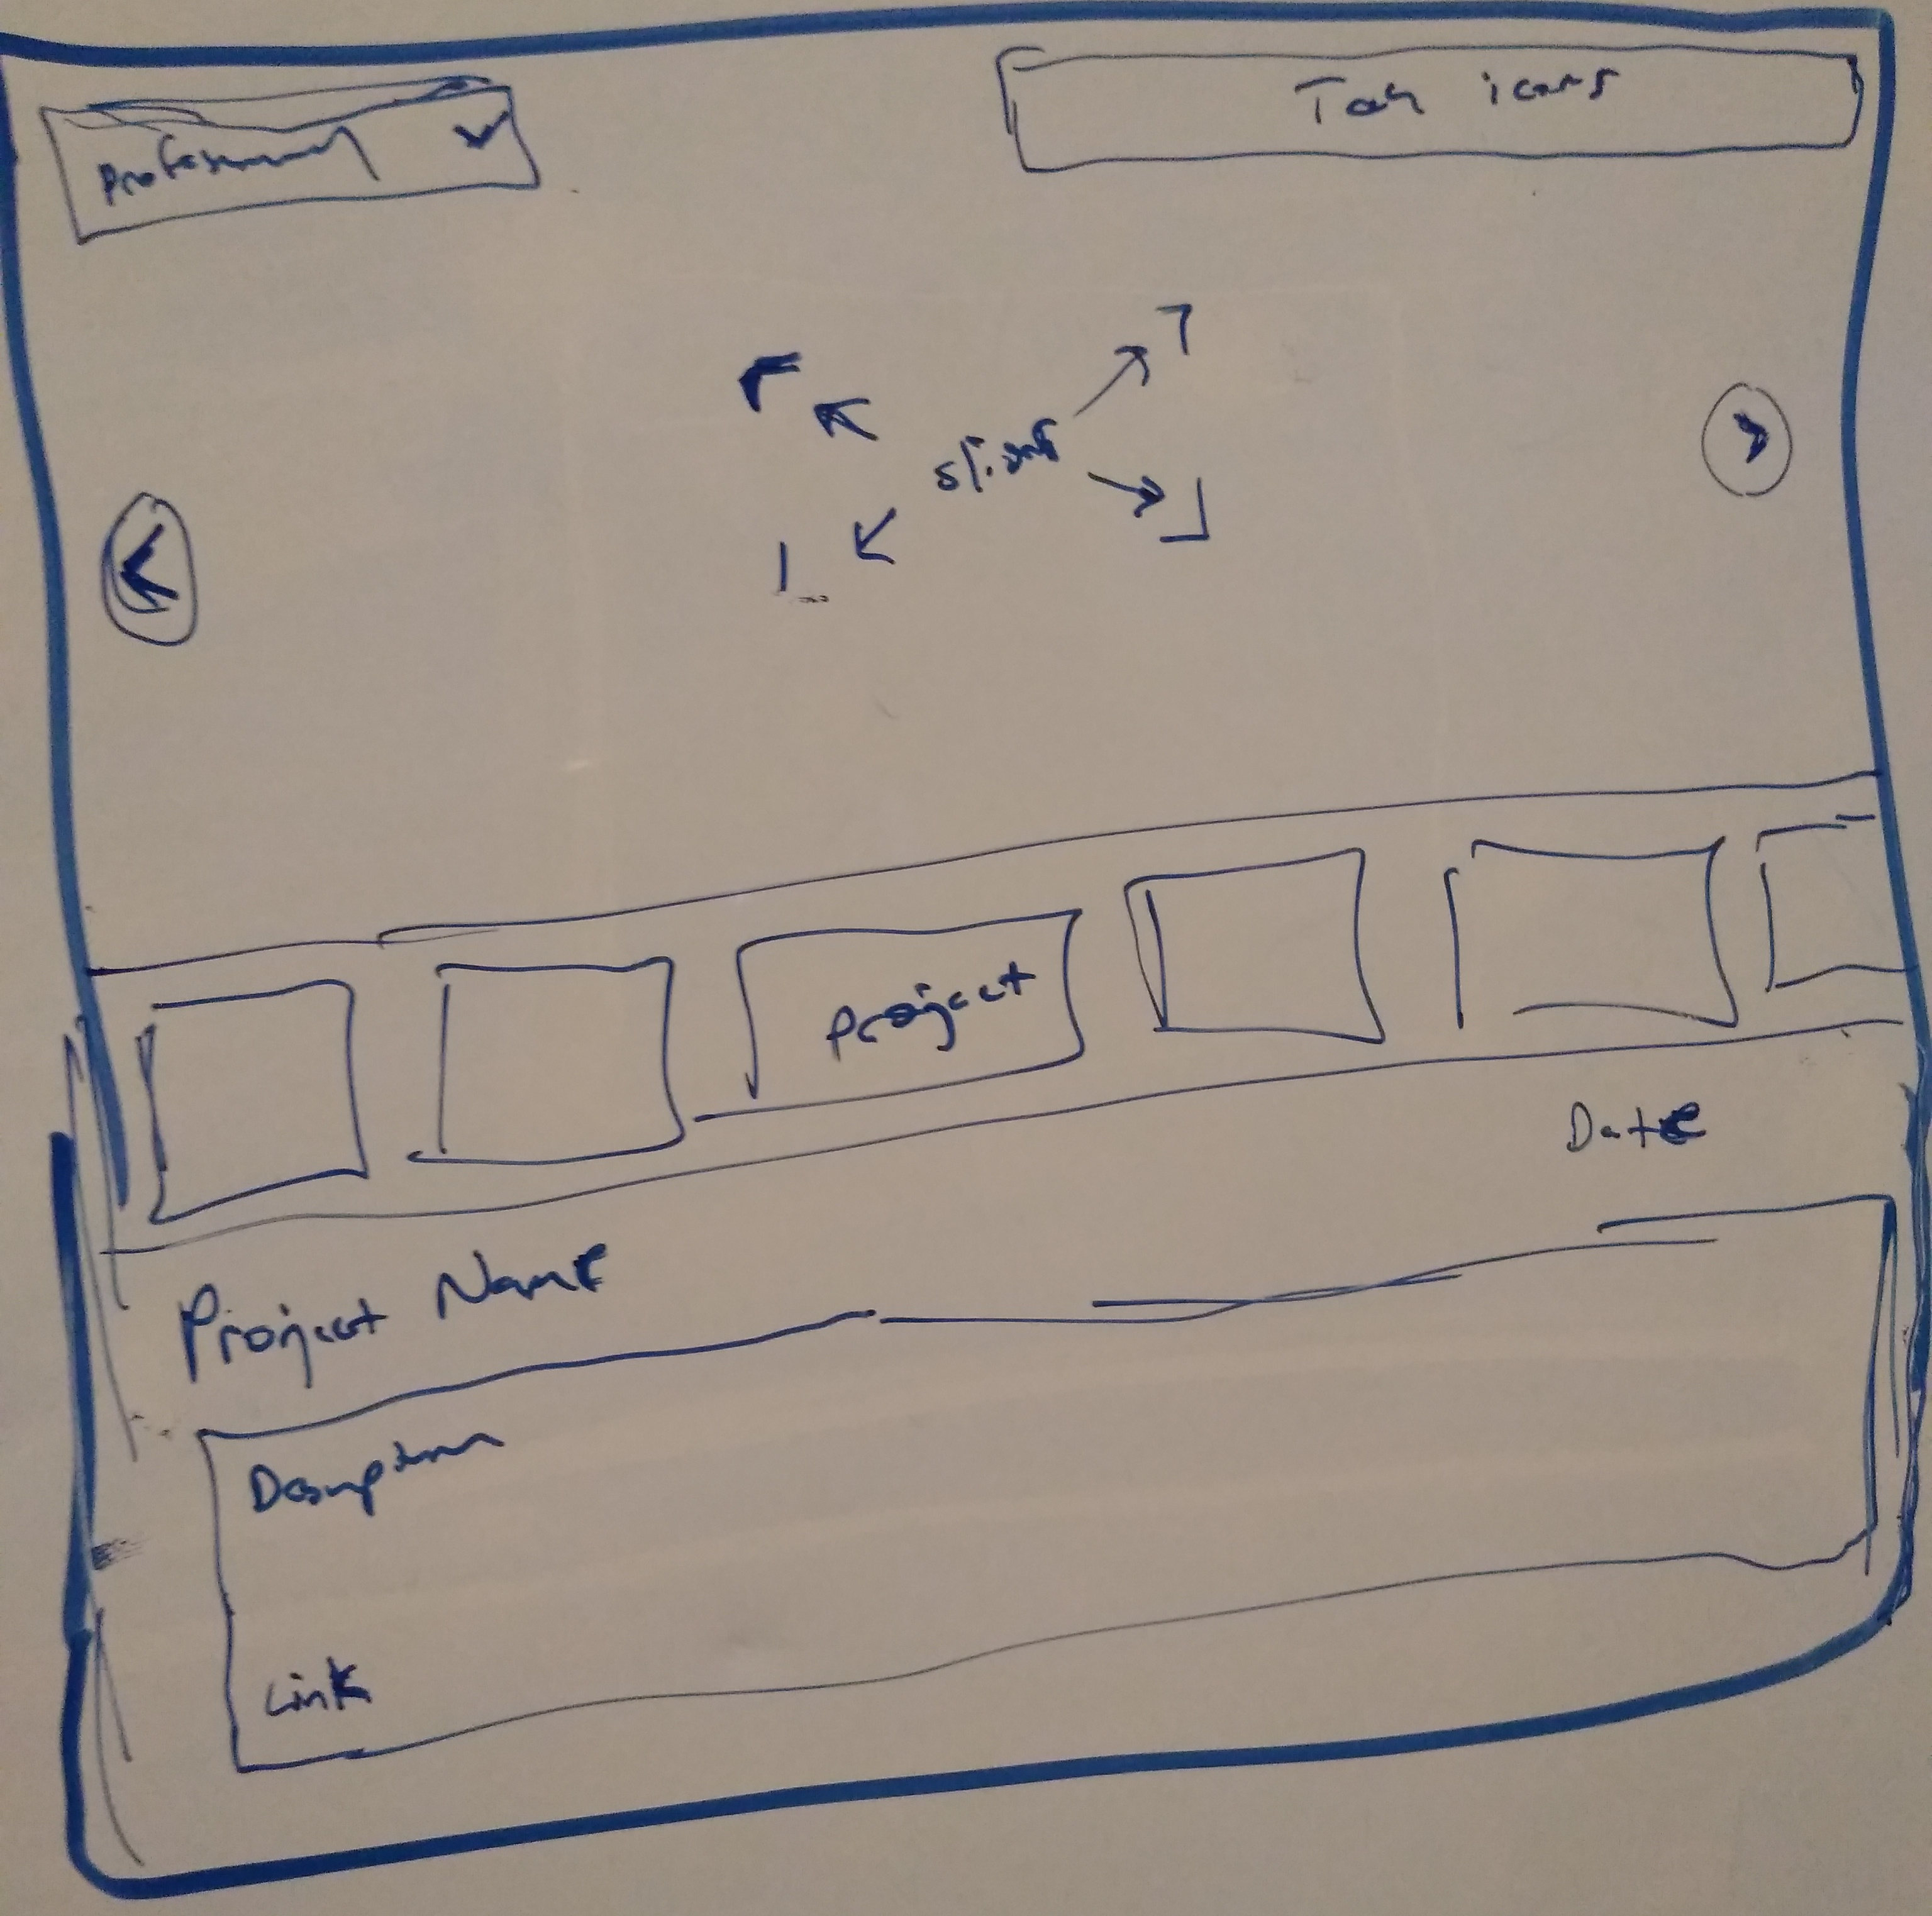 Professional
Tech icons
slides
Project
Date
Project Name
Description
Link